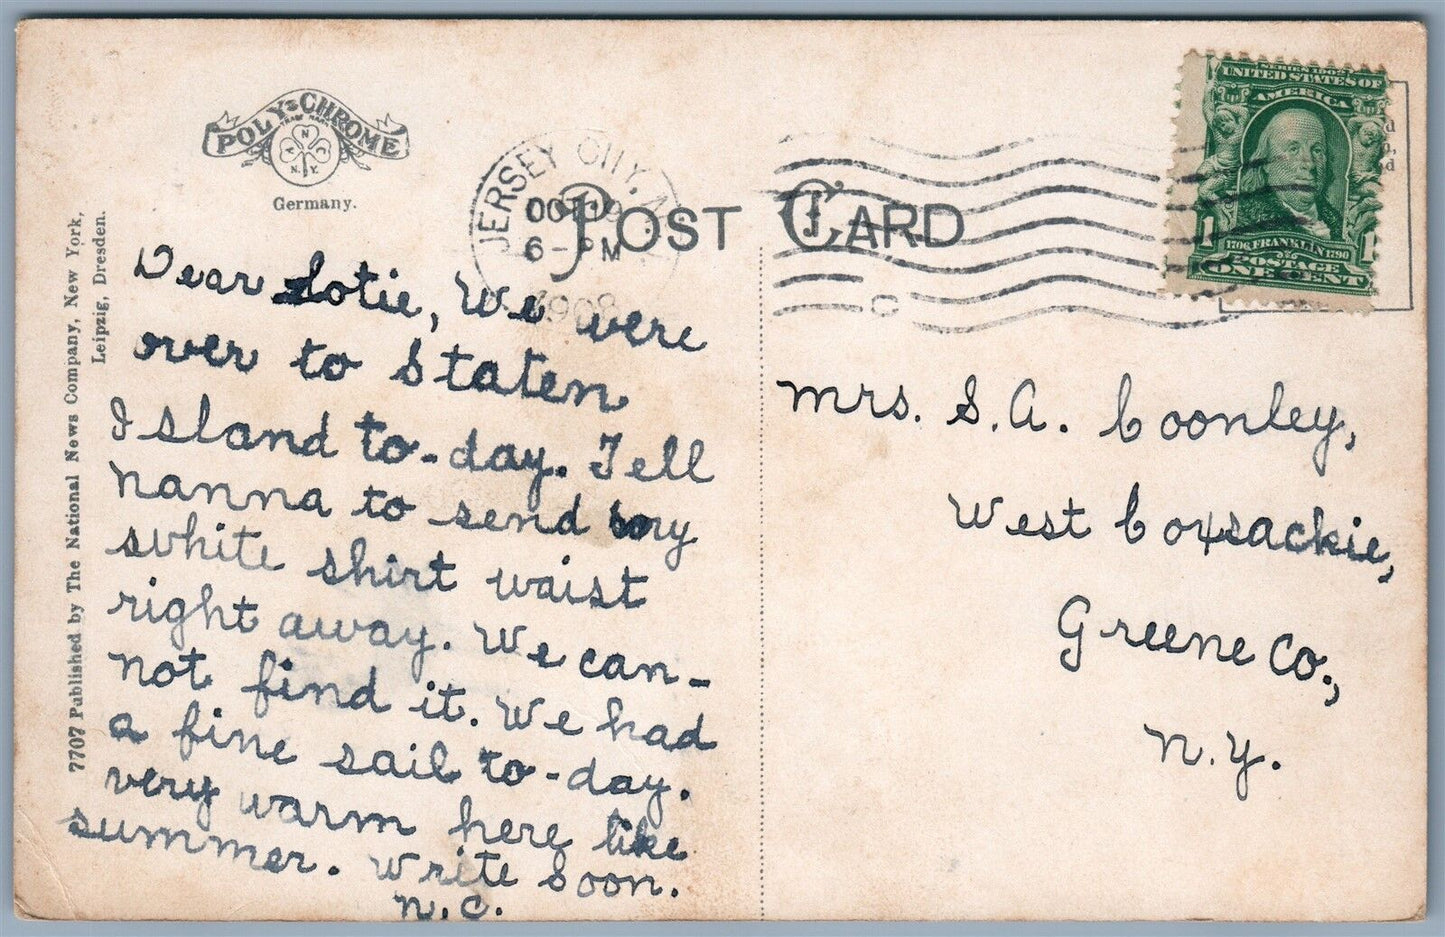 POLYCHROME
TRADE MARK
N
N. Y.
Germany.
7707 Published by The National News Company, New York,
Leipzig, Dresden.
JERSEY CITY, N.
OCT 19
6-PM
1908
POST CARD
C
SERIES 1902
UNITED STATES OF
AMERICA
1 1
1706 FRANKLIN 1790
POSTAGE
ONE CENT
Dear Lotie, We were
over to Staten
Island to-day. Tell
Nanna to send my
white shirt waist
right away. We can-
not find it. We had
a fine sail to-day.
very warm here like
summer. Write soon.
N. C.
Mrs. S. A. Coonley,
West Coxsackie,
Greene Co.,
N. Y.